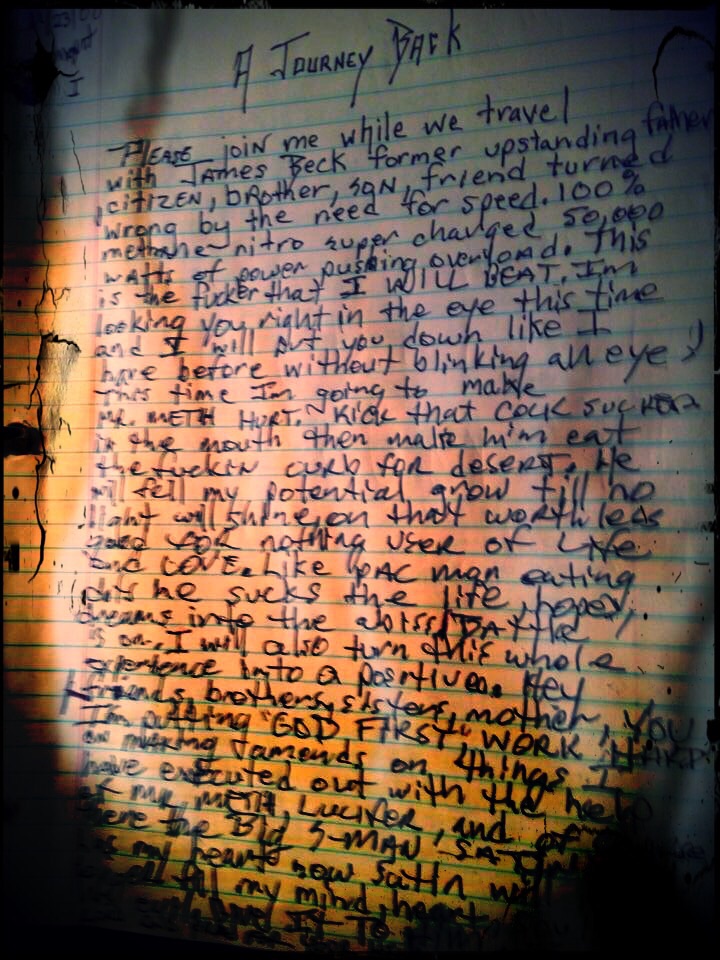 A JOURNEY BACK
PLEASE join me while we travel
with JAMES BECK former upstanding father
, CITIZEN, bROTHER, SON, friend turned
wrong by the need for speed. 100%
methane nitro super charged 50,000
watts of power pushing overload. This
is the fucker that I WILL BEAT. I'm
looking you right in the eye this time
and I will put you down like I
have before without blinking an eye
This time I'm going to make
MR. METH HURT. KICK that COCK SUCKER
in the mouth then make him eat
the fuckin curb for desert. He
will fell my potential grow till no
light will shine on that worthless
good FOR nothing USER OF LIFE
and LOVE. Like PAC man eating
dots he sucks the life, hopes,
dreams into the abiss. BATTLE
is on. I will also turn this whole
experience into a positive. Hey
friends, brothers, sisters, mother, YOU
I'm putting "GOD FIRST" WORK HARD
on making Jamends on things I
have executed out with the help
of MR. METH, LUCIFER, and of
the BIG S-MAN
my heart now
fill my mind, heart
IT TO